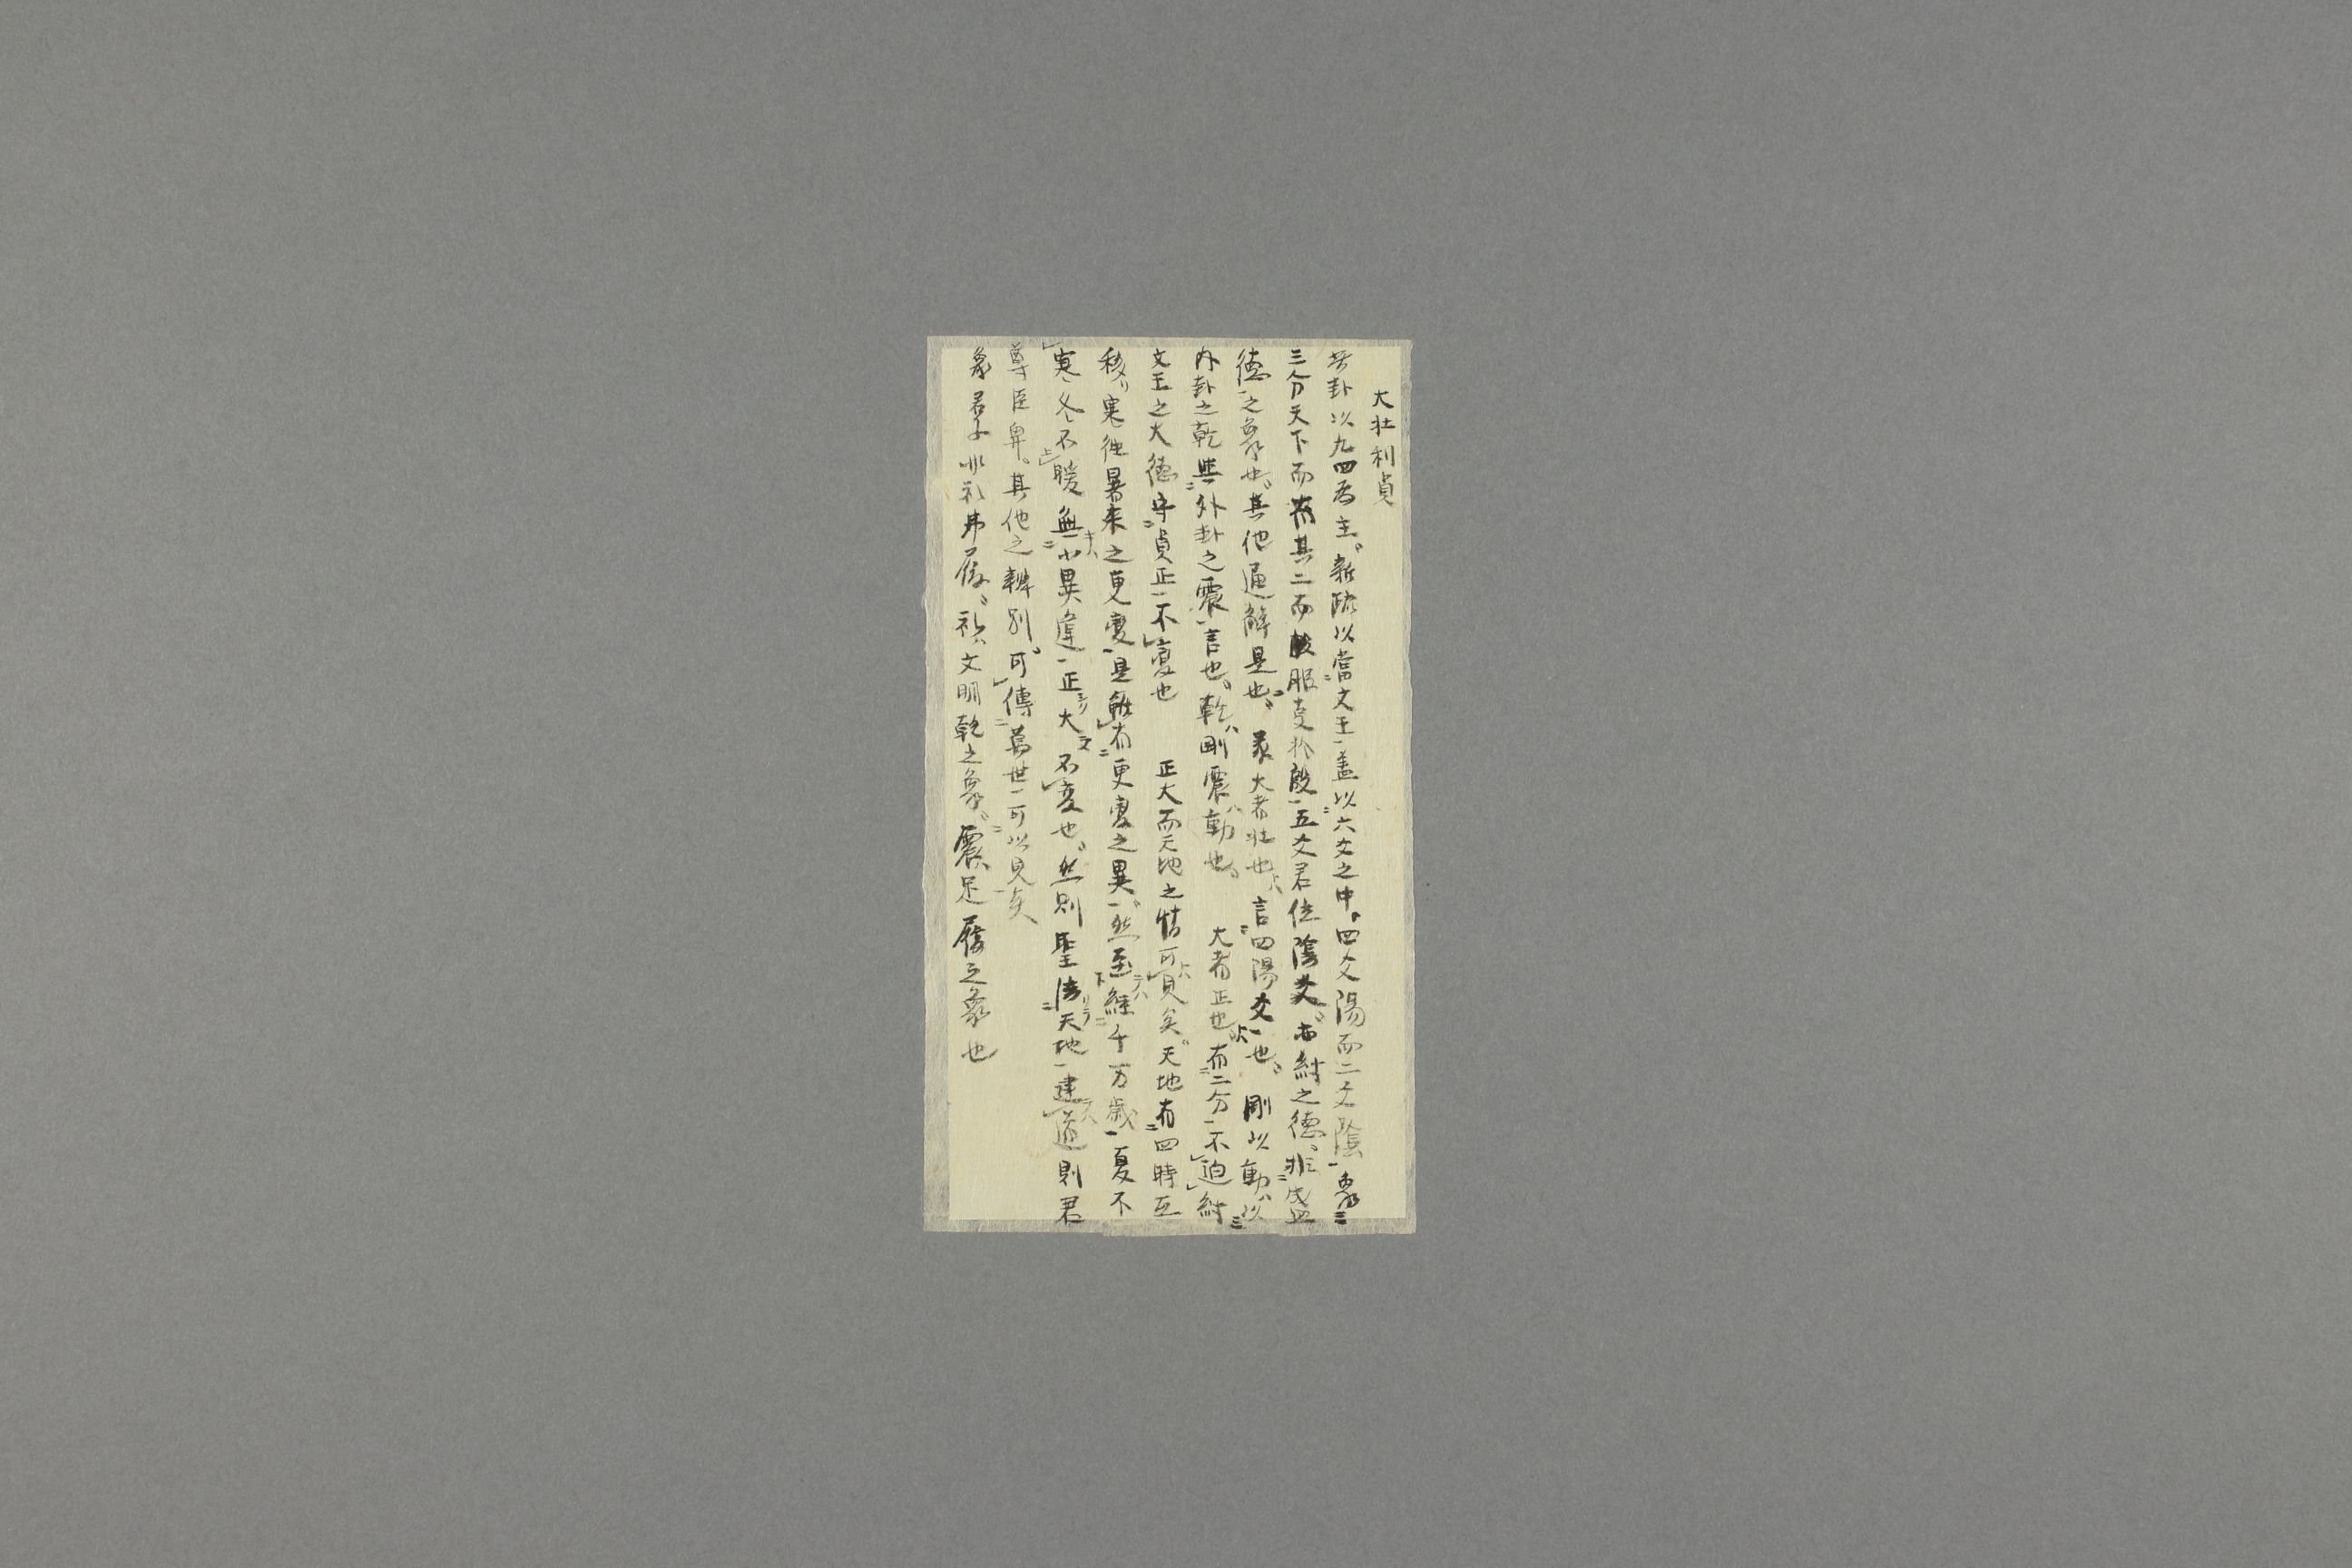 大壮利貞
卦以九四為主、新疏以當文王蓋以六爻之中、四爻陽而二爻陰象
三分天下而有其二而服叓於殷五爻君位陰爻、亦紂之德、非盛
德之象也、其他通解是也、彖大者壮也、言四陽爻也、剛以動以
内卦之乾與外卦之震言也、乾ハ剛震ハ動也、大者正也、有二分不迫紂
文王之大德守貞正不変也 正大而天地之情可見矣、天地有四時互
移リ寒往暑来之更変是雖有更変之異、然至經千万歳夏不
寒、冬不暖無少異違正大不変也、然則聖法天地建道則君
尊臣卑、其他之辨別、可傳萬世可以見矣
象君子非礼弗履、礼ハ文明乾之象、震足履之象也